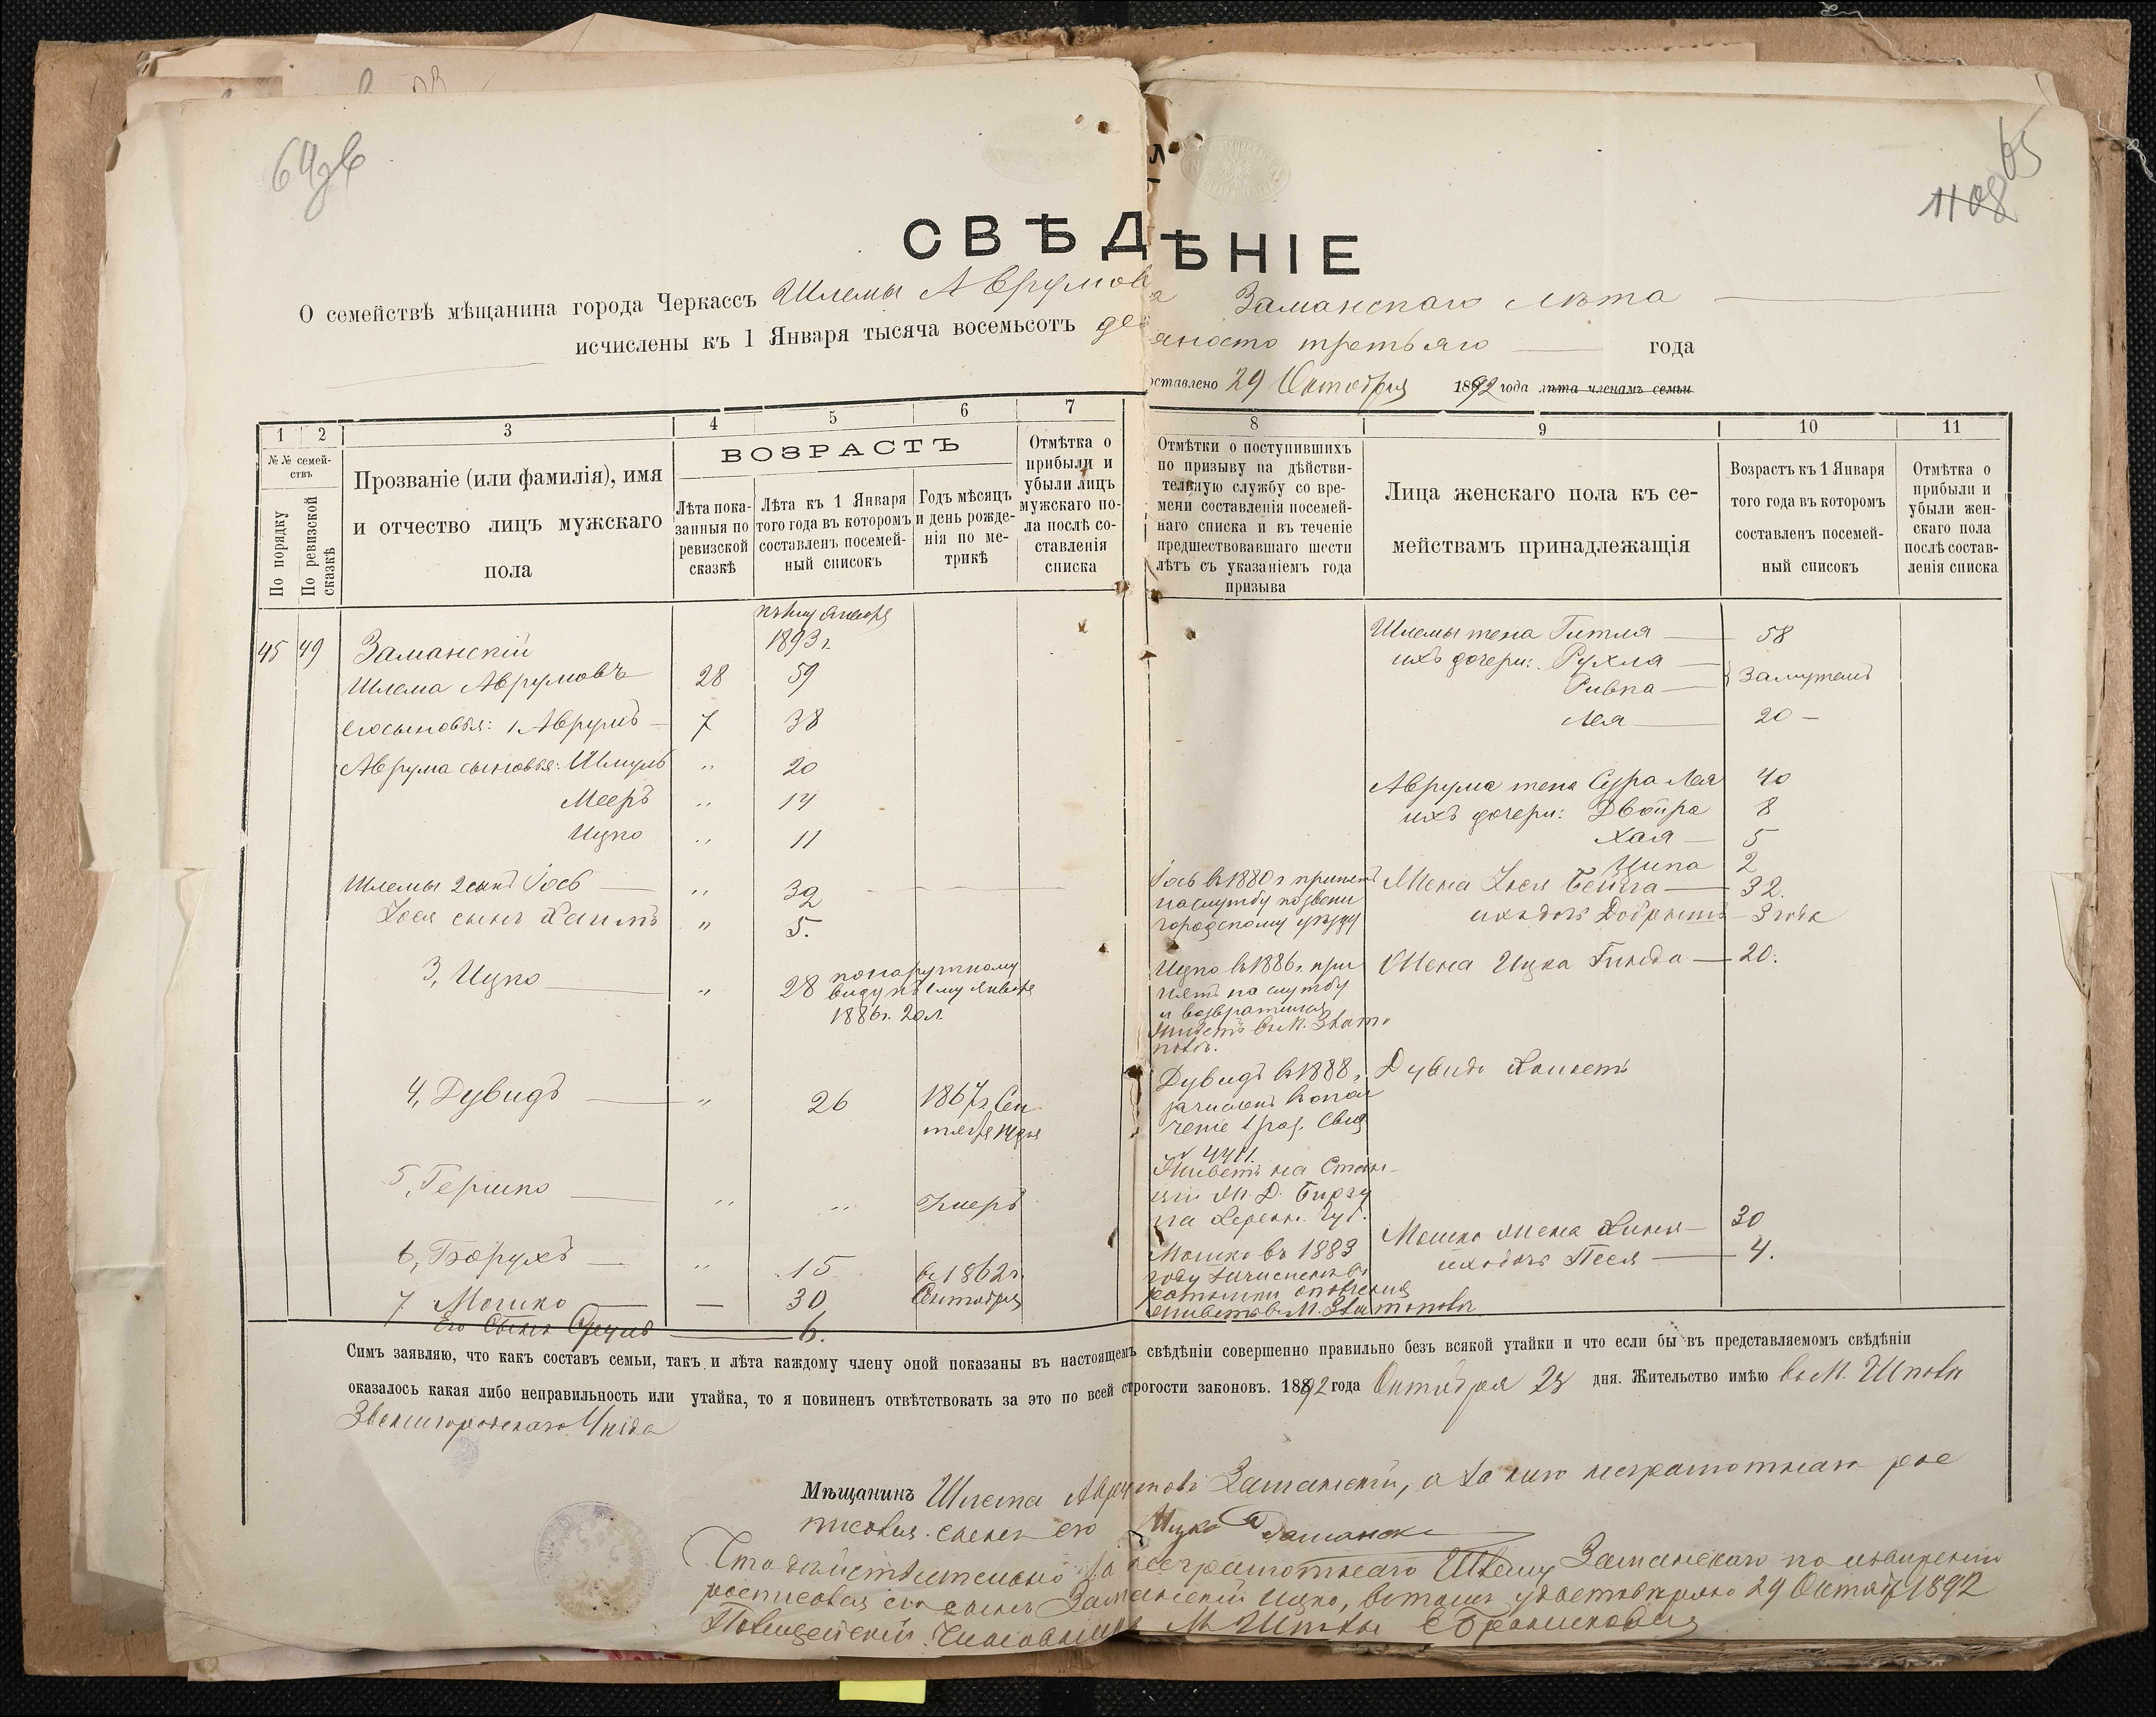 64об
65
1108
СВѢДѢНІЕ
О семействѣ мѣщанина города Черкассъ Шлемы Аврумова Заманскаго лѣта
исчислены къ 1 Января тысяча восемьсотъ девяносто третьяго года
оставлено 29 Октября 1892 года лѣта членамъ семьи
1 2 3 4 5 6 7 8 9 10 11
№№ семействъ
По порядку
По ревизской сказкѣ
Прозваніе (или фамилія), имя
и отчество лицъ мужскаго
пола
ВОЗРАСТЪ
Лѣта показанныя по ревизской сказкѣ
Лѣта къ 1 Января того года въ которомъ составленъ посемейный списокъ
Годъ мѣсяцъ и день рожденія по метрикѣ
Отмѣтка о прибыли и убыли лицъ мужскаго пола послѣ составленія списка
Отмѣтки о поступившихъ
по призыву на дѣйстви-
тельную службу со вре-
мени составленія посемей-
наго списка и въ теченіе
предшествовавшаго шести
лѣтъ съ указаніемъ года
призыва
Лица женскаго пола къ се-
мействамъ принадлежащія
Возрастъ къ 1 Января
того года въ которомъ
составленъ посемей-
ный списокъ
Отмѣтка о
прибыли и
убыли жен-
скаго пола
послѣ состав-
ленія списка
къ 1му Января
1893 г.
45 49 Заманскій
Шлема Аврумовъ 28 59
его сыновья: 1 Аврумъ 7 38
Аврума сыновья: Шмуль " 20
Мееръ " 14
Ицко " 11
Шлемы 2 сынъ Іось " 32
Іося сынъ Хаимъ " 5.
3, Ицко " 28 по наружному
виду къ 1му Января
1886 г. 20 л.
4, Дувидъ " 26 1867 г. Сен
тября 14 дня
5, Гершко " " Умеръ
6, Борухъ " 15
7 Мошко — 30 въ 1862 г.
Сентября
Его Сынъ Сруль 6.
Іось въ 1880 г. принятъ
на службу по Звени
городскому уѣзду
Ицко въ 1886 г. при
нятъ на службу
и возвратился
Живетъ въ М.
Дувидъ въ 1888 г.
зачисленъ въ опол
ченіе 1 раз. Свид
№ 4411.
Живетъ на Стан-
ціи Ж. Д. Бирзу
ла Херсон. Губ.
Мошко въ 1883
году зачисленъ въ
ратники ополченія
живетъ въ М.
Шлемы жена Гитля 58
ихъ дочери: Рухля
Ривка
Замужемъ
Лея 20
Аврума жена Сура Лея 40
ихъ дочери: Двойра 8
Хая 5
Ципа 2
Жена Іося Бейла 32.
ихъ дочь 3 года
Жена Ицка Гинда 20.
Дувидъ Холостъ
Мошка жена 30
ихъ дочь Песя 4.
Симъ заявляю, что какъ составъ семьи, такъ и лѣта каждому члену оной показаны въ настоящемъ свѣдѣніи совершенно правильно безъ всякой утайки и что если бы въ представляемомъ свѣдѣніи
оказалось какая либо неправильность или утайка, то я повиненъ отвѣтствовать за это по всей строгости законовъ. 1892 года Октября 28 дня. Жительство имѣю въ М. Шпола
Звенигородскаго Уѣзда
Мѣщанинъ Шлема Аврумовъ Заманскій, а за него неграмотнаго рос
писался сынъ его Ицко Заманск
Что дѣйствительно за неграмотнаго Шлему Заманскаго по
росписался его сынъ Заманскій Ицко, въ томъ удостовѣряю 29 Октября 1892
Полицейскій М. Шполы